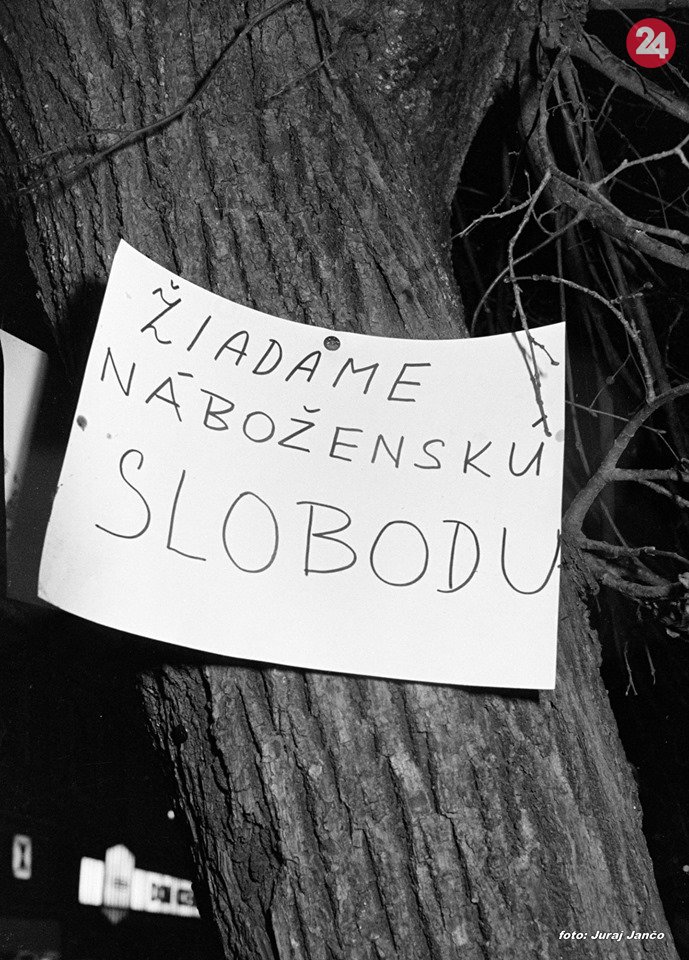 24
ŽIADAME
NÁBOŽENSKÚ
SLOBODU
foto: Juraj Jančo